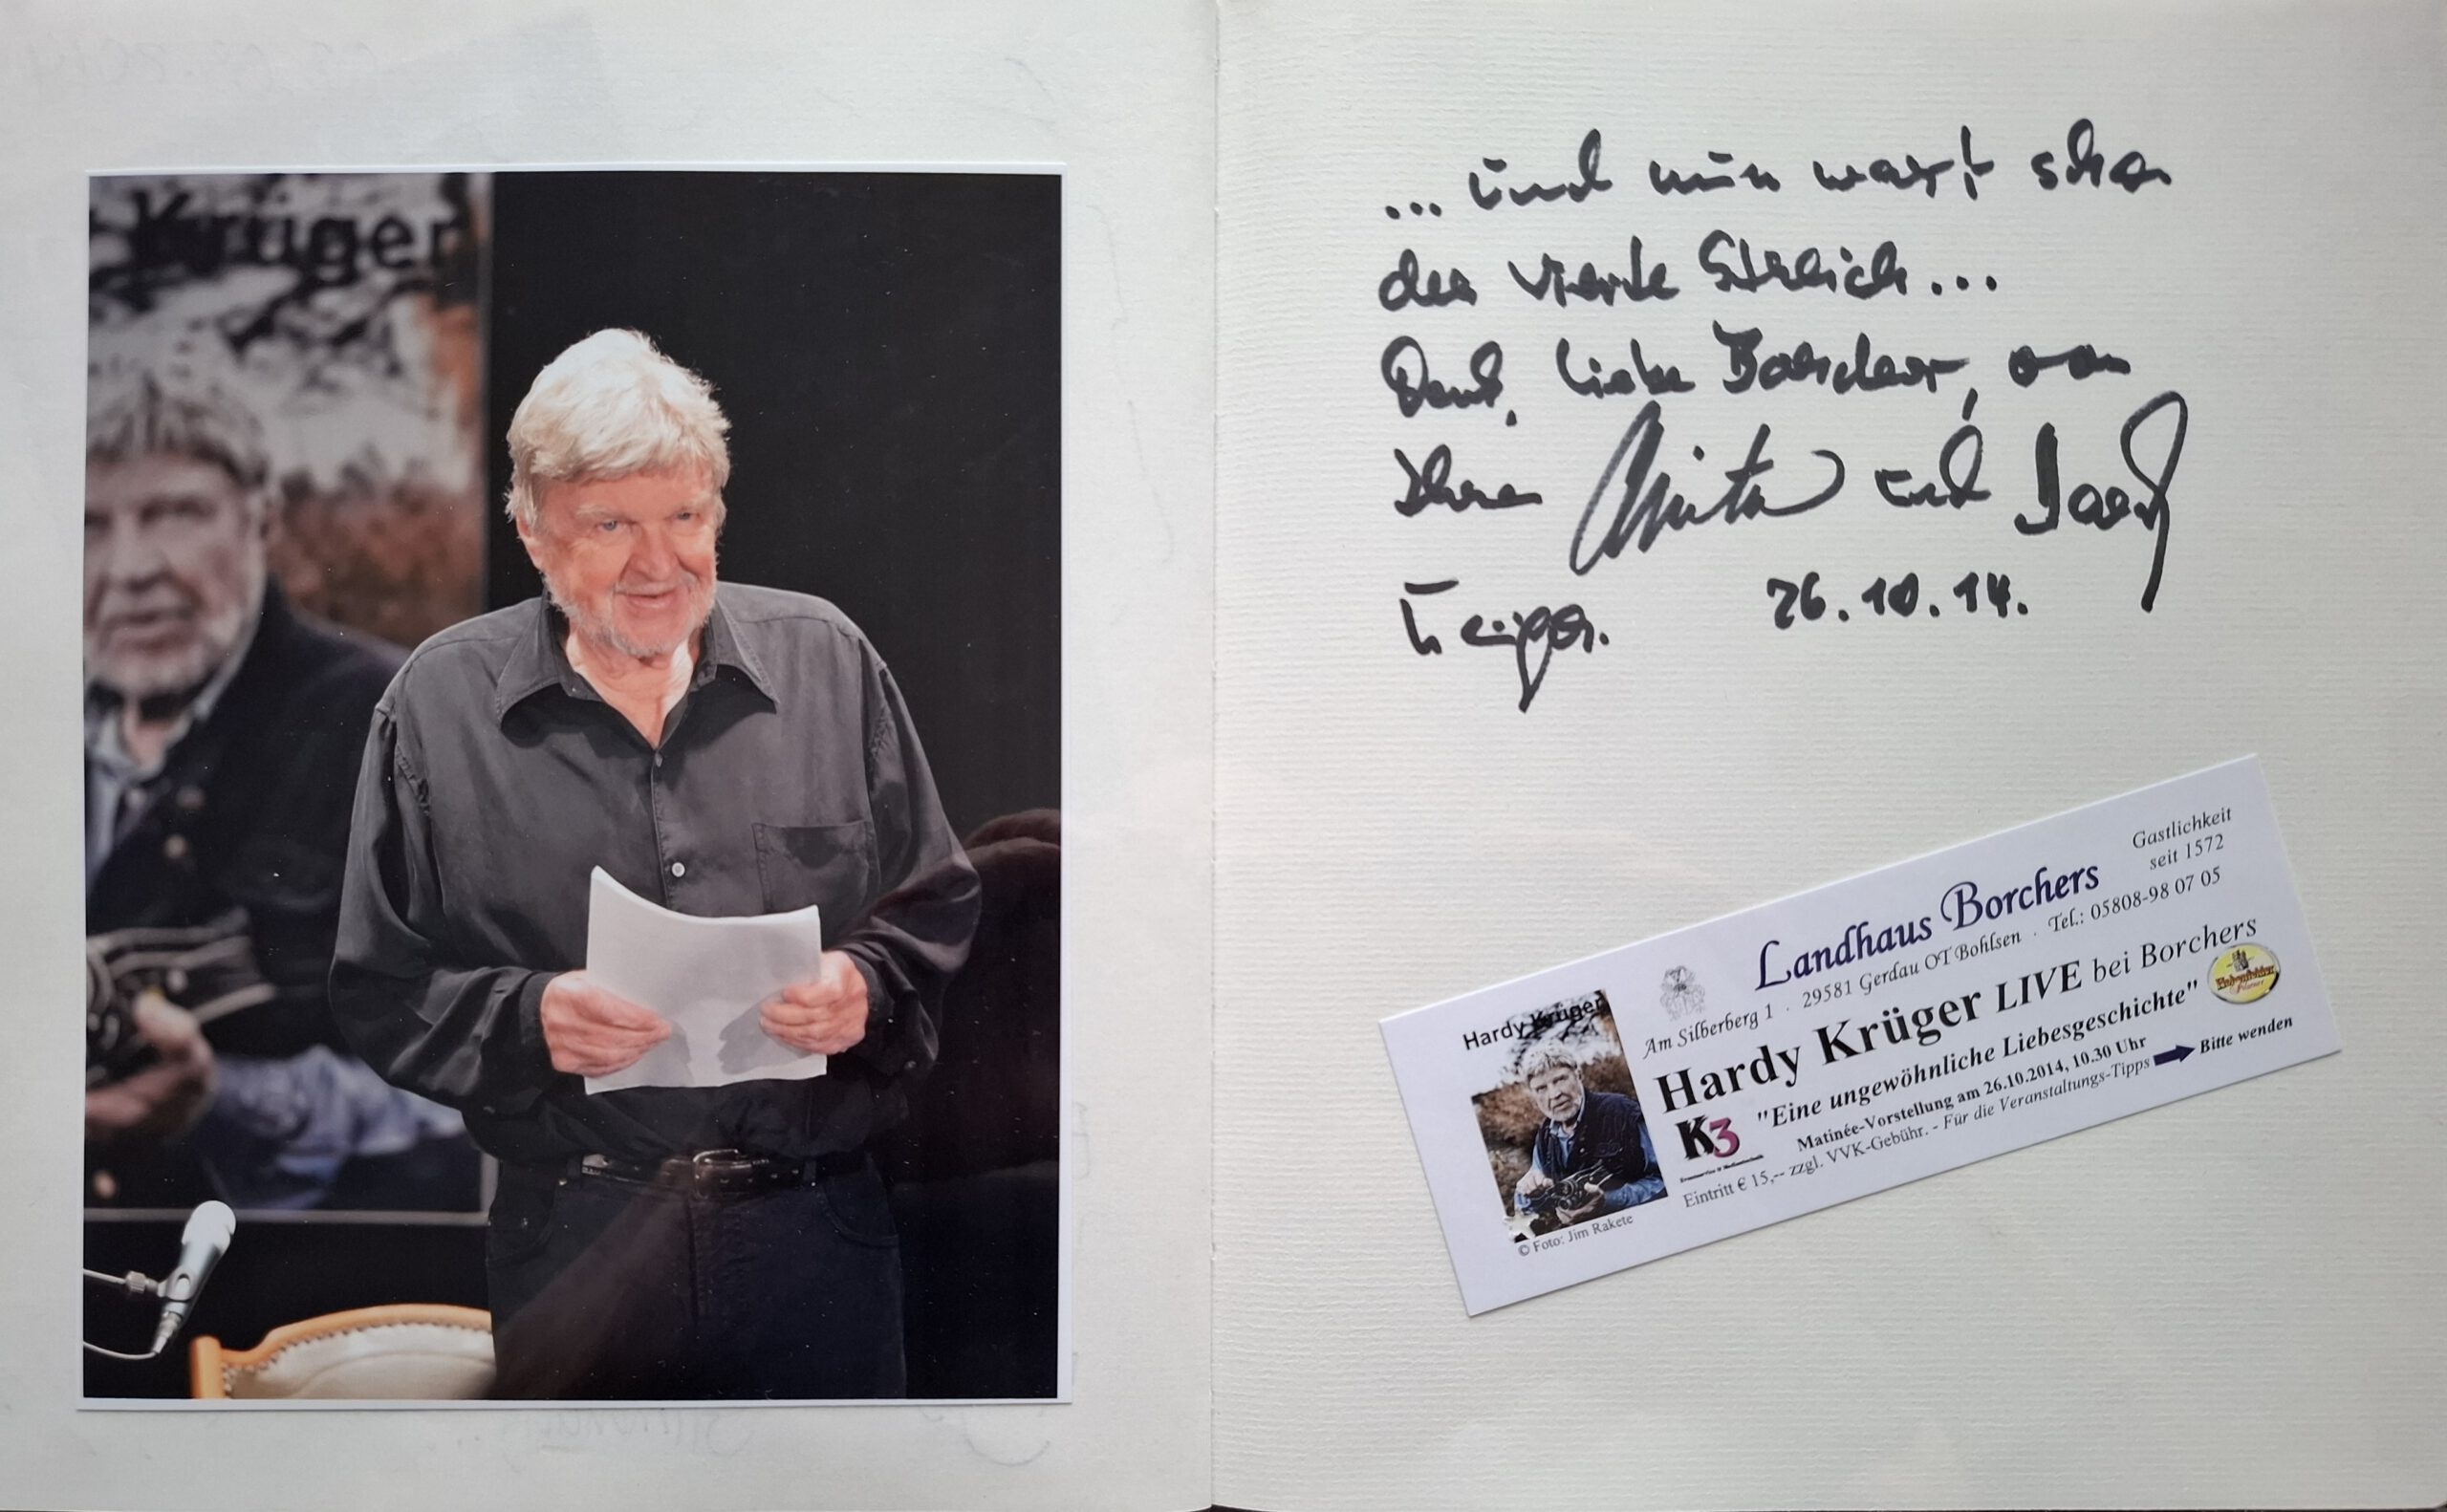 Krüger
... und nun war's schon
der vierte Streich...
Dank, liebe Borchers, von
Ihren Anita und Hardy
Krüger. 26.10.14.
Gastlichkeit
seit 1572
Landhaus Borchers
Am Silberberg 1 · 29581 Gerdau OT Bohlsen · Tel.: 05808-98 07 05
Hardy Krüger LIVE bei Borchers
"Eine ungewöhnliche Liebesgeschichte"
Matinée-Vorstellung am 26.10.2014, 10.30 Uhr
Eintritt € 15,-- zzgl. VVK-Gebühr. - Für die Veranstaltungs-Tipps Bitte wenden
K3
Hardy Krüger
© Foto: Jim Rakete